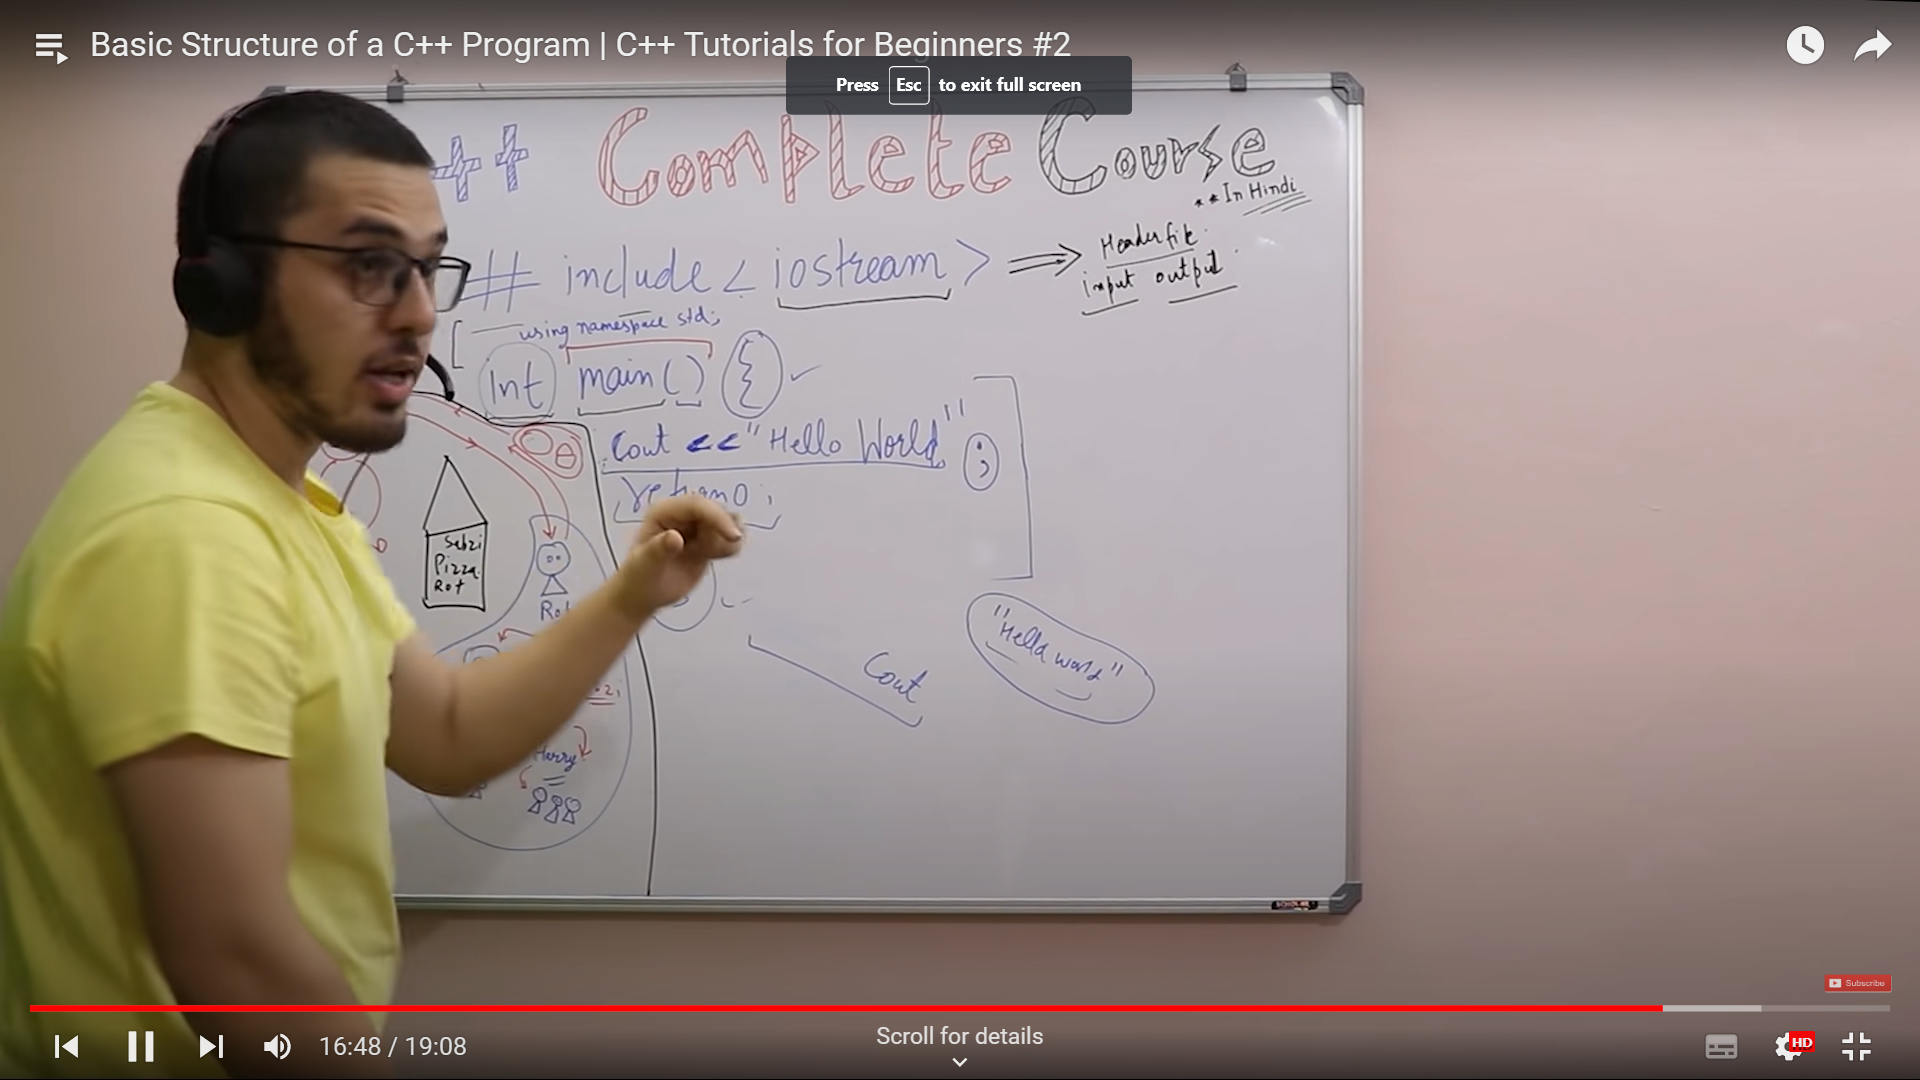 Basic Structure of a C++ Program | C++ Tutorials for Beginners #2
Press Esc to exit full screen
++ Complete Course
**In Hindi
# include < iostream > ⇒ Headerfile
input output
using namespace std;
Int main() {
Cout << "Hello World" ;
return 0;
Sabzi
Pizza
Rot
Rot
"Hello world"
Cout
Harry
Subscribe
16:48 / 19:08
Scroll for details
HD